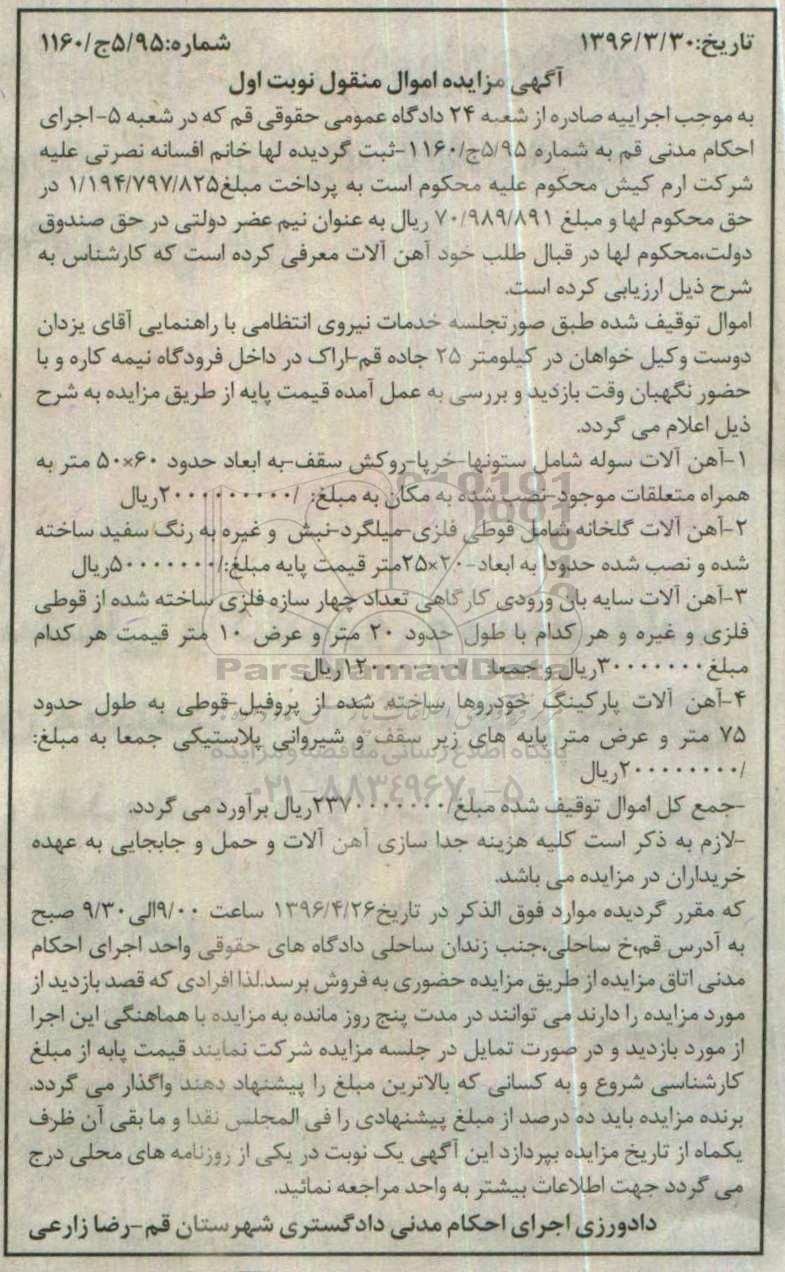 تاریخ:۱۳۹۶/۳/۳۰ شماره:۵/۹۵ج/۱۱۶۰
آگهی مزایده اموال منقول نوبت اول
به موجب اجراییه صادره از شعبه ۲۴ دادگاه عمومی حقوقی قم که در شعبه ۵-اجرای
احکام مدنی قم به شماره ۵/۹۵ج/۱۱۶۰-ثبت گردیده لها خانم افسانه نصرتی علیه
شرکت ارم کیش محکوم علیه محکوم است به پرداخت مبلغ۱/۱۹۴/۷۹۷/۸۲۵ در
حق محکوم لها و مبلغ ۷۰/۹۸۹/۸۹۱ ریال به عنوان نیم عضر دولتی در حق صندوق
دولت،محکوم لها در قبال طلب خود آهن آلات معرفی کرده است که کارشناس به
شرح ذیل ارزیابی کرده است.
اموال توقیف شده طبق صورتجلسه خدمات نیروی انتظامی با راهنمایی آقای یزدان
دوست وکیل خواهان در کیلومتر ۲۵ جاده قم-اراک در داخل فرودگاه نیمه کاره و با
حضور نگهبان وقت بازدید و بررسی به عمل آمده قیمت پایه از طریق مزایده به شرح
ذیل اعلام می گردد.
۱-آهن آلات سوله شامل ستونها-خرپا-روکش سقف-به ابعاد حدود ۶۰×۵۰ متر به
همراه متعلقات موجود-نصب شده به مکان به مبلغ: /۲۰۰۰۰۰۰۰۰۰ریال
۲-آهن آلات گلخانه شامل قوطی فلزی-میلگرد-نبش و غیره به رنگ سفید ساخته
شده و نصب شده حدودا به ابعاد-۲۰×۲۵متر قیمت پایه مبلغ:/۵۰۰۰۰۰۰۰ریال
۳-آهن آلات سایه بان ورودی کارگاهی تعداد چهار سازه فلزی ساخته شده از قوطی
فلزی و غیره و هر کدام با طول حدود ۲۰ متر و عرض ۱۰ متر قیمت هر کدام
مبلغ۳۰۰۰۰۰۰۰ریال و جمعا ۱۲۰۰۰۰۰۰۰ریال
ParsNamadData
۴-آهن آلات پارکینگ خودروها ساخته شده از پروفیل-قوطی به طول حدود
۷۵ متر و عرض متر پایه های زیر سقف و شیروانی پلاستیکی جمعا به مبلغ:
پایگاه اطلاع رسانی مناقصه و مزایده
/۲۰۰۰۰۰۰۰۰ریال
۰۲۱-۸۸۳۴۹۶۷۰-۵
-جمع کل اموال توقیف شده مبلغ/۲۳۷۰۰۰۰۰۰۰ریال برآورد می گردد.
-لازم به ذکر است کلیه هزینه جدا سازی آهن آلات و حمل و جابجایی به عهده
خریداران در مزایده می باشد.
که مقرر گردیده موارد فوق الذکر در تاریخ۱۳۹۶/۴/۲۶ ساعت ۹/۰۰الی۹/۳۰ صبح
به آدرس قم،خ ساحلی،جنب زندان ساحلی دادگاه های حقوقی واحد اجرای احکام
مدنی اتاق مزایده از طریق مزایده حضوری به فروش برسد.لذا افرادی که قصد بازدید از
مورد مزایده را دارند می توانند در مدت پنج روز مانده به مزایده با هماهنگی این اجرا
از مورد بازدید و در صورت تمایل در جلسه مزایده شرکت نمایند قیمت پایه از مبلغ
کارشناسی شروع و به کسانی که بالاترین مبلغ را پیشنهاد دهند واگذار می گردد.
برنده مزایده باید ده درصد از مبلغ پیشنهادی را فی المجلس نقدا و ما بقی آن ظرف
یکماه از تاریخ مزایده بپردازد این آگهی یک نوبت در یکی از روزنامه های محلی درج
می گردد جهت اطلاعات بیشتر به واحد مراجعه نمائید.
دادورزی اجرای احکام مدنی دادگستری شهرستان قم-رضا زارعی